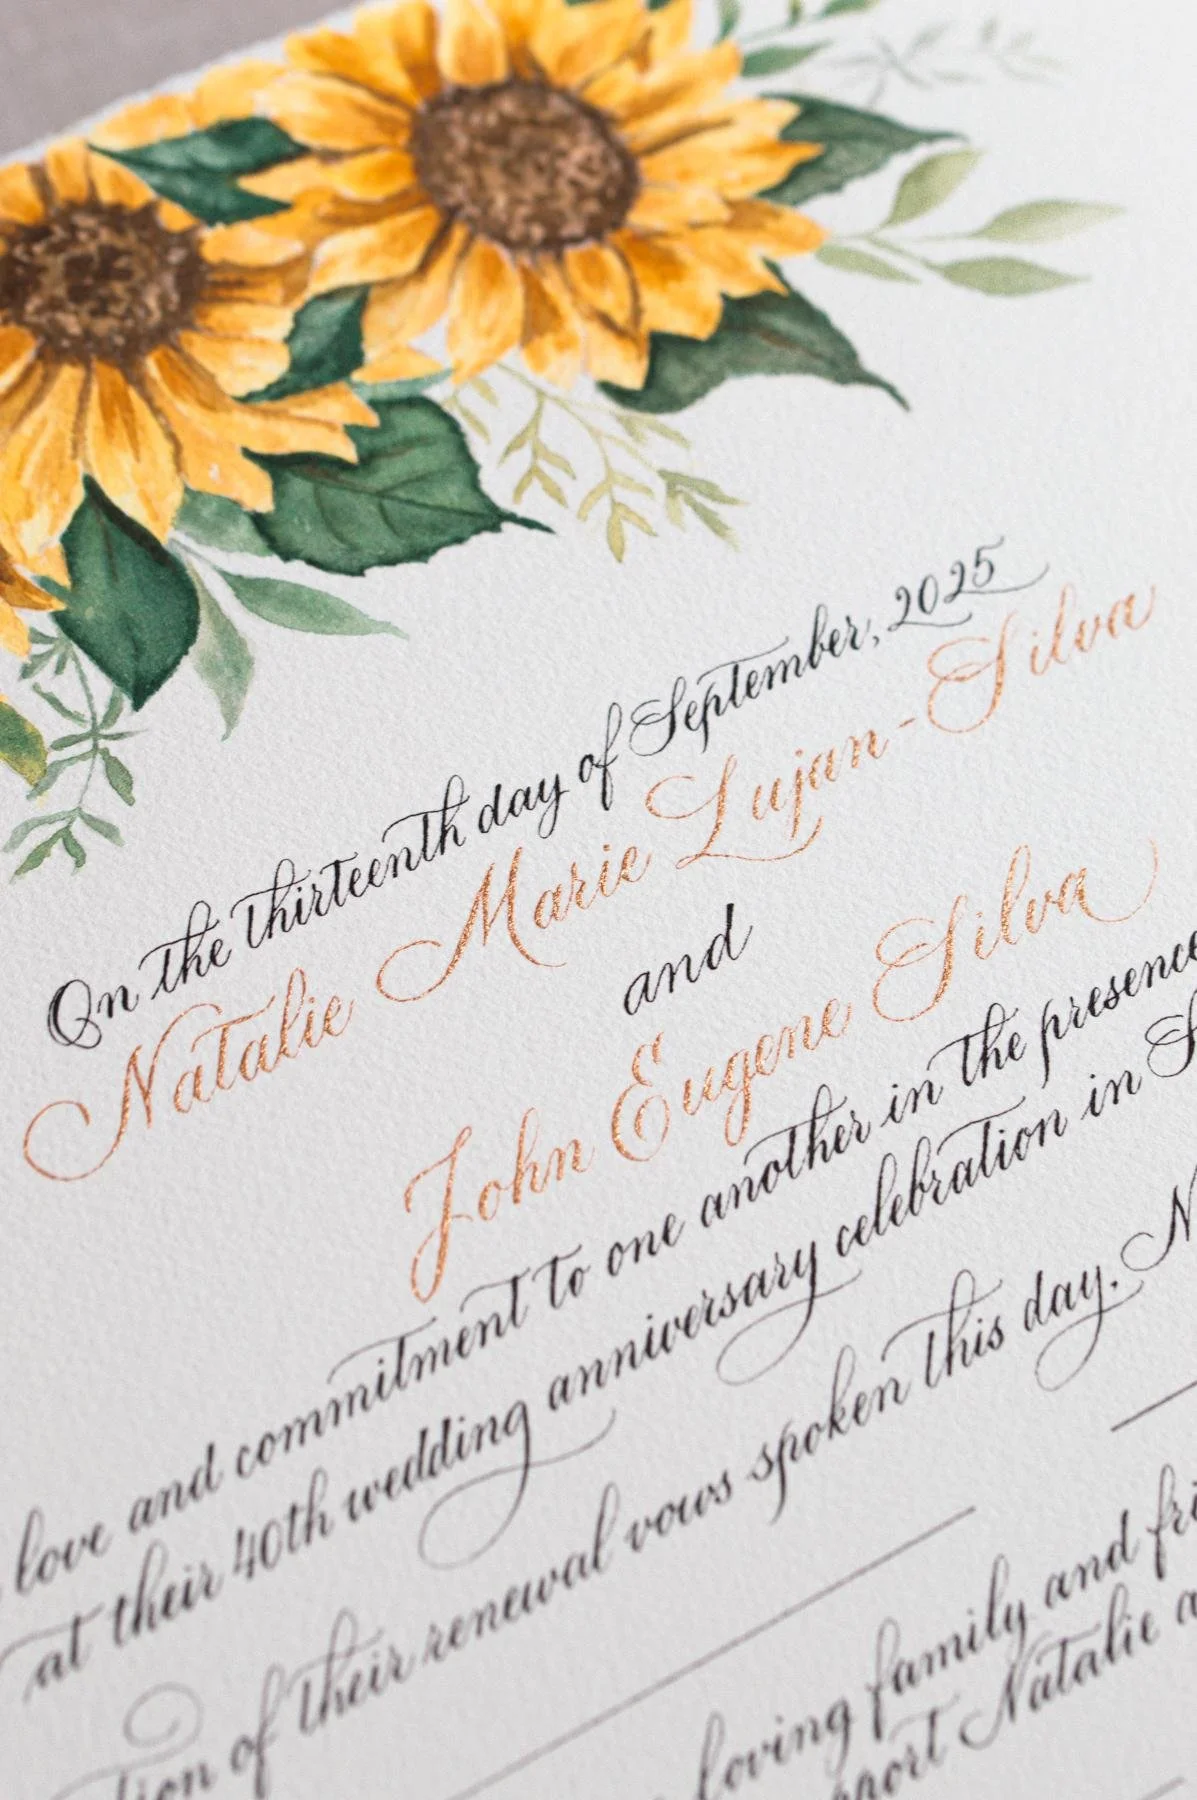 On the thirteenth day of September, 2025
Natalie Marie Lujan-Silva
and
John Eugene Silva
love and commitment to one another in the presence
at their 40th wedding anniversary celebration in
of their renewal vows spoken this day.
loving family and
Natalie